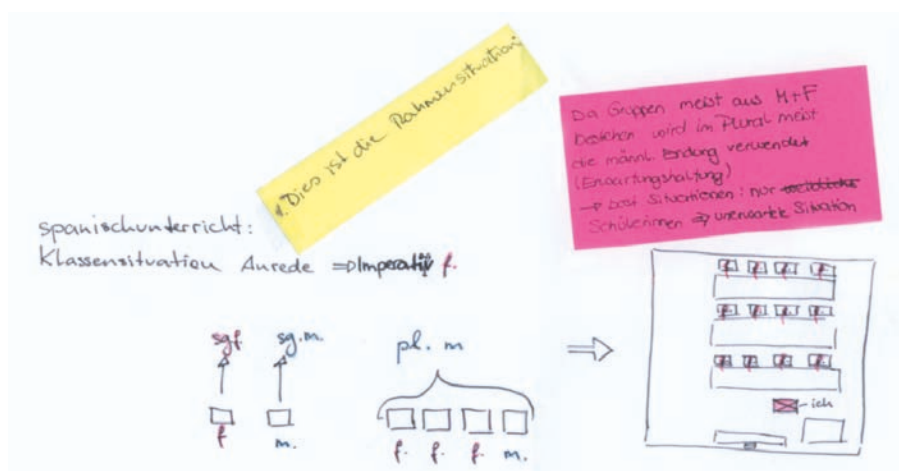 1. Dies ist die Rahmensituation:
Da Gruppen meist aus M+F
bestehen wird im Plural meist
die männl. Endung verwendet
(Erwartungshaltung)
→ best Situationen: nur weibliche
Schülerinnen ⇒ unerwartete Situation
spanischunterricht:
Klassensituation Anrede ⇒ Imperativ f.
sg f. sg. m. pl. m
f m. f. f. f. m.
f f f f
f f f f
f f f f
ich